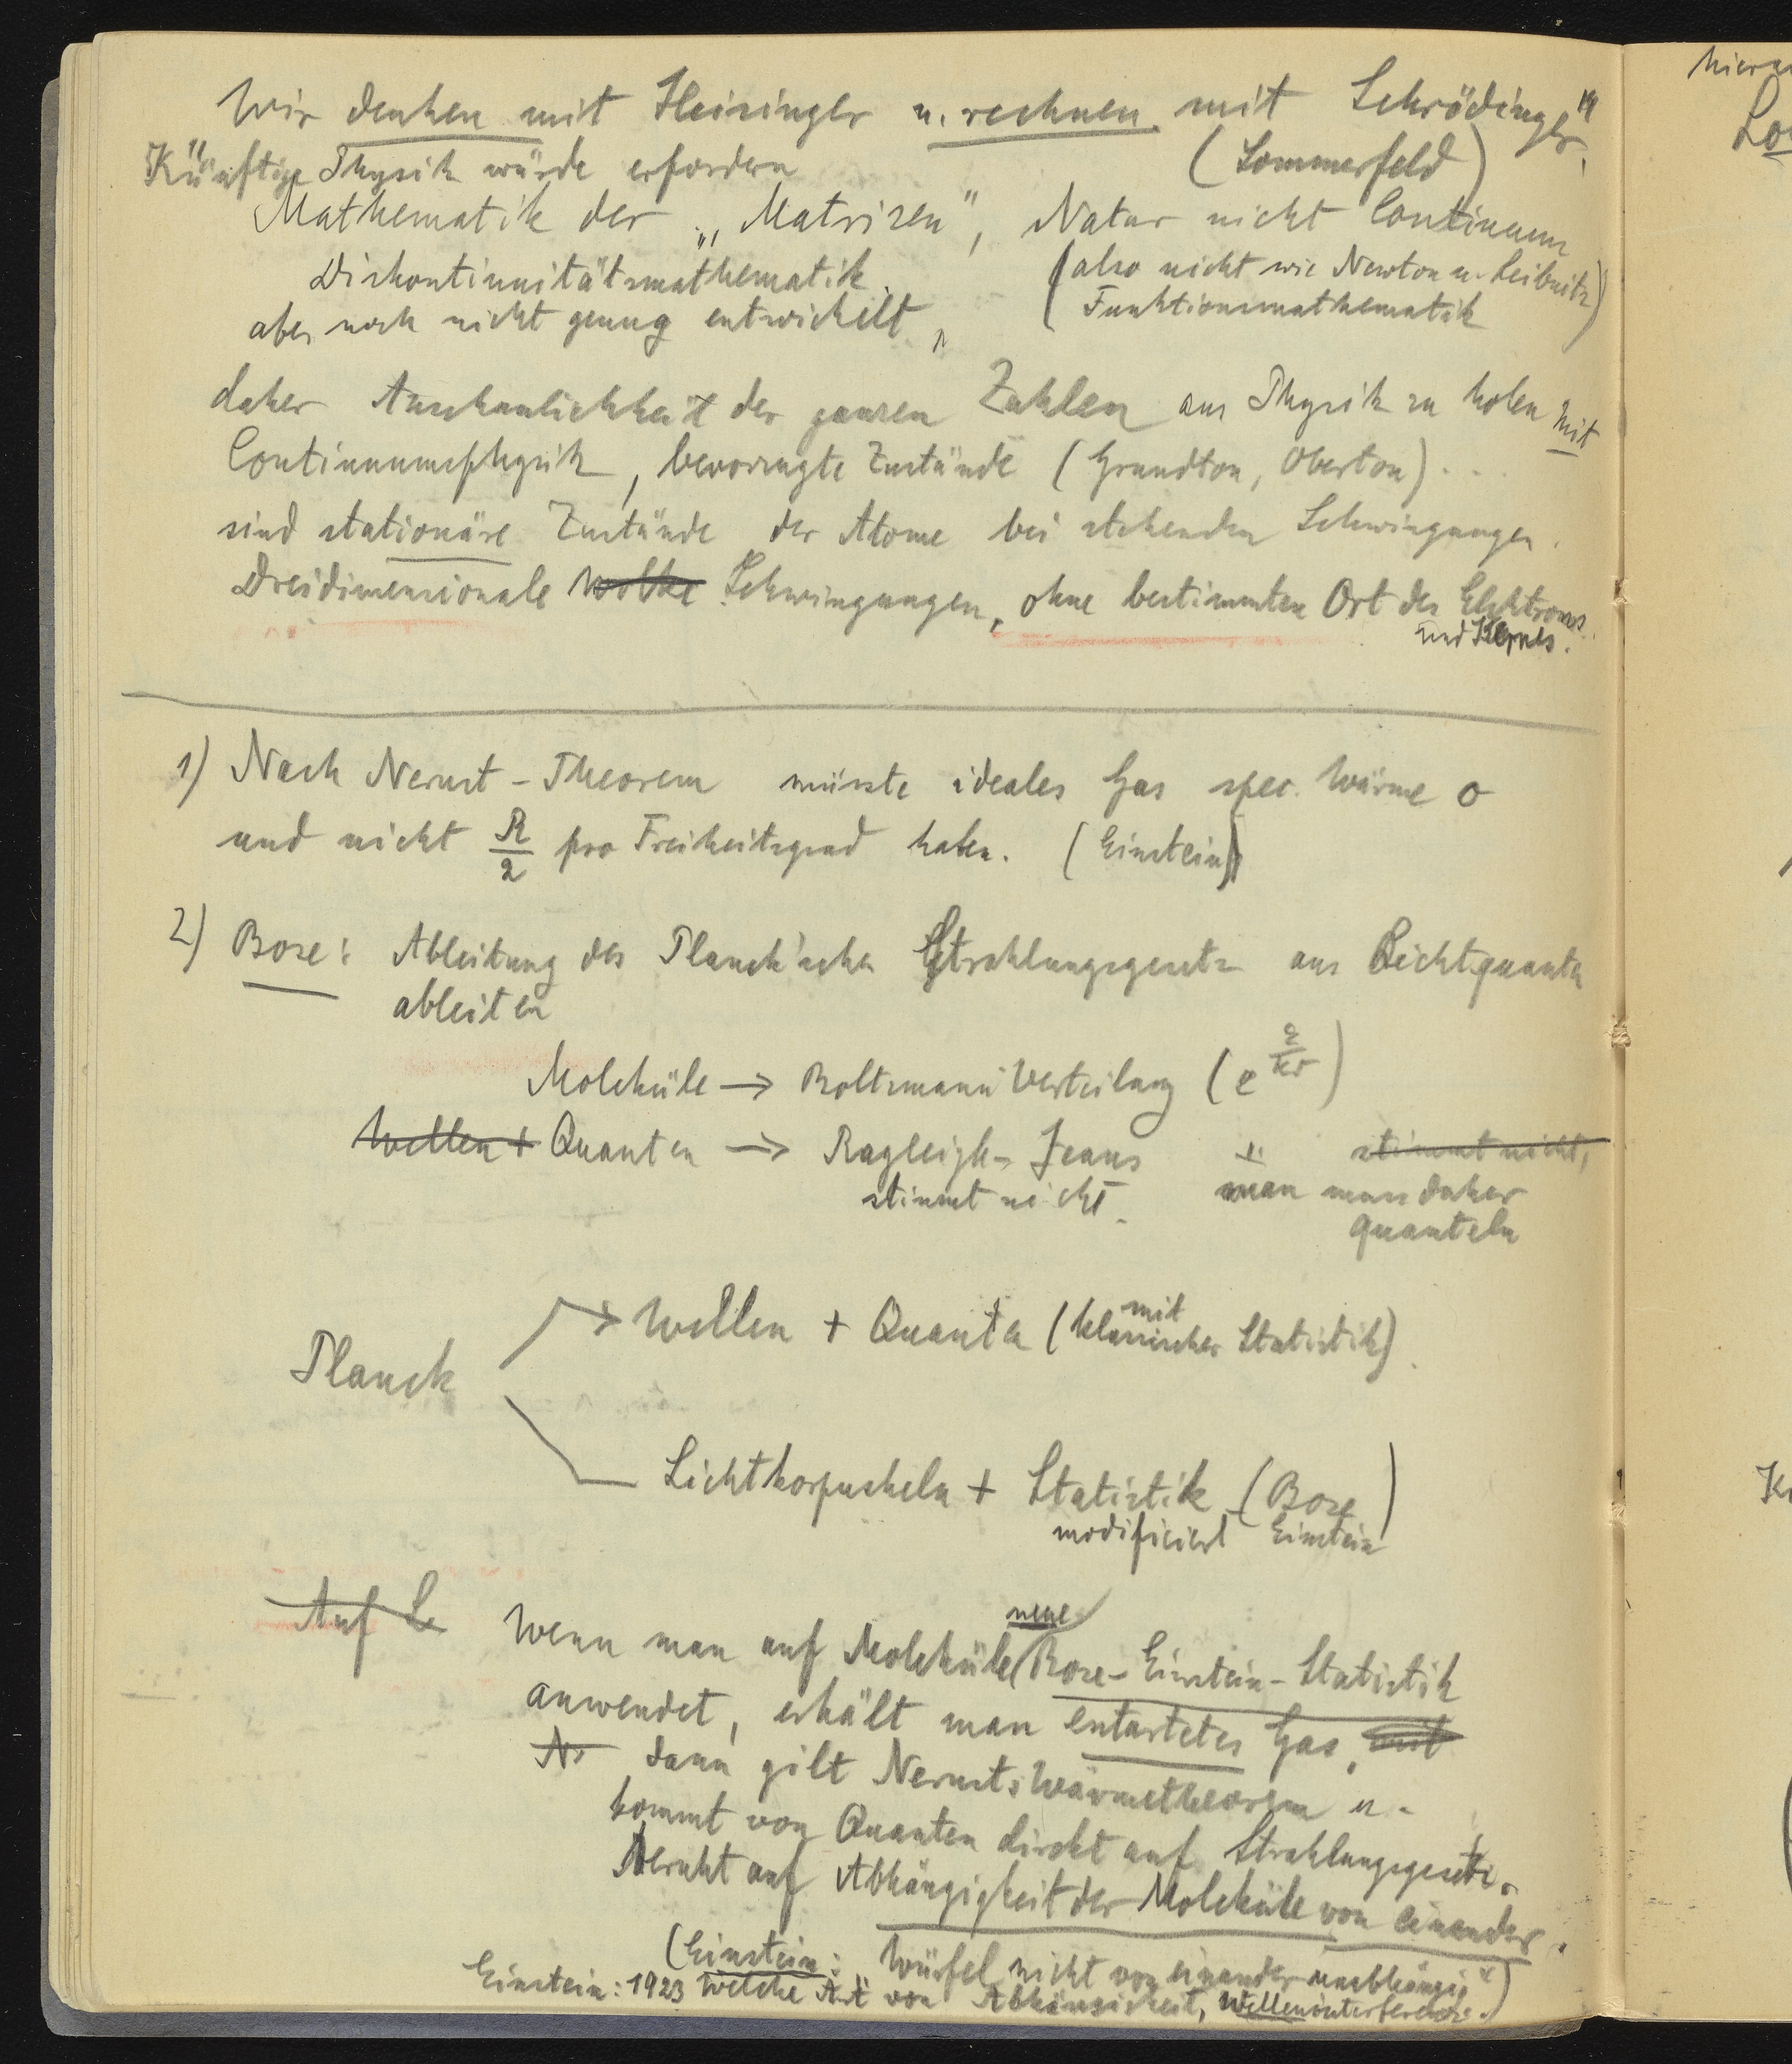 Wir denken mit Heisinger u. rechnen mit Schrödinger"
(Sommerfeld)
Künftige Physik würde erfordern
Mathematik der „Matrizen", Natur nicht Continuum
Diskontinuitätsmathematik. (also nicht wie Newton u. Leibnitz
aber noch nicht genug entwickelt, Funktionsmathematik)
daher Anschaulichkeit der ganzen Zahlen aus Physik zu holen mit
Continuumsphysik, bevorzugte Zustände (Grundton, Oberton) . . .
sind stationäre Zustände der Atome bei stehenden Schwingungen.
Dreidimensionale Wolke Schwingungen, ohne bestimmten Ort des Elektrons
und Kernes.
1) Nach Nernst-Theorem müsste ideales Gas spec. Wärme 0
und nicht R/2 pro Freiheitsgrad haben. (Einstein)
2) Bose: Ableitung des Planck'schen Strahlungsgesetz aus Lichtquanten
ableiten
Moleküle → Boltzmann Verteilung (e ε/kT)
Wellen + Quanten → Rayleigh-Jeans " stimmt nicht,
stimmt nicht. man muss daher
quanteln
Planck → Wellen + Quanten (mit klassischer Statistik).
Lichtkorpuskeln + Statistik (Bose
modificiert Einstein)
Auf L
Wenn man auf Moleküle neue Bose-Einstein-Statistik
anwendet, erhält man entartetes Gas, mit
Nr dann gilt Nernsts Wärmetheorem u.
kommt von Quanten direkt auf Strahlungsgesetz.
Beruht auf Abhängigkeit der Moleküle von einander.
(Einstein: „Würfel nicht von einander unabhängig")
Einstein: 1923 Welche Art von Abhängigkeit, Welleninterferenz.)
hiera
Lo
K